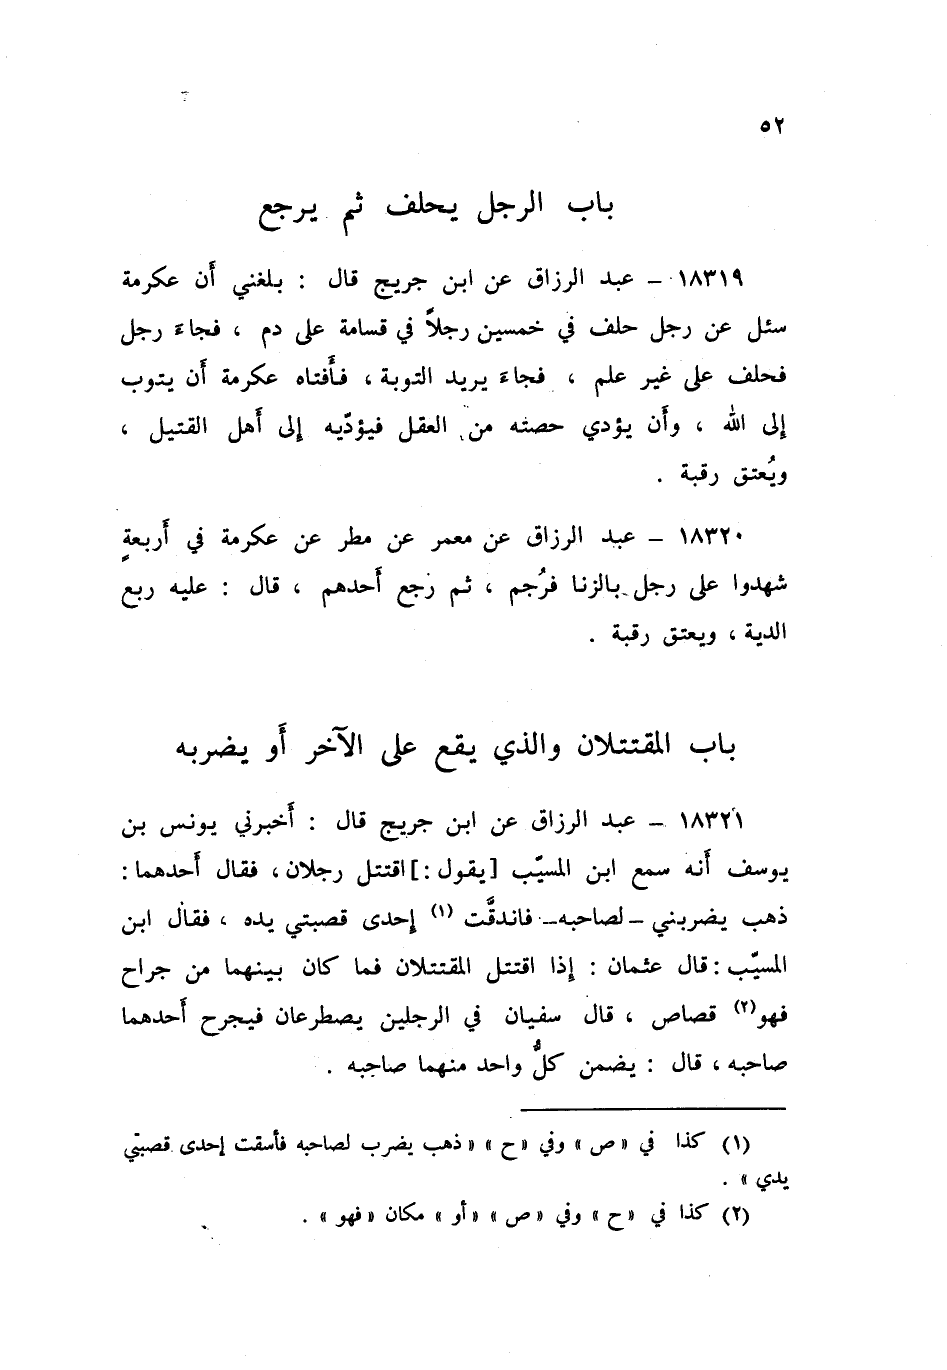 ٥٢
باب الرجل يحلف ثم يرجع
١٨٣١٩ – عبد الرزاق عن ابن جريج قال : بلغني أن عكرمة
سئل عن رجل حلف في خمسين رجلاً في قسامة على دم ، فجاءَ رجل
فحلف على غير علم ، فجاءَ يريد التوبة ، فأفتاه عكرمة أن يتوب
إلى الله ، وأن يؤدي حصته من العقل فيؤدّيه إلى أهل القتيل ،
ويُعتق رقبة .
١٨٣٢٠ – عبد الرزاق عن معمر عن مطر عن عكرمة في أربعةٍ
شهدوا على رجل بالزنا فرُجم ، ثم رجع أحدهم ، قال : عليه ربع
الدية ، ويعتق رقبة .
باب المقتتلان والذي يقع على الآخر أو يضربه
١٨٣٢١ – عبد الرزاق عن ابن جريج قال : أخبرني يونس بن
يوسف أنه سمع ابن المسيّب [يقول :] اقتتل رجلان ، فقال أحدهما :
ذهب يضربني – لصاحبه – فاندقَّت (١) إحدى قصبتي يده ، فقال ابن
المسيّب : قال عثمان : إذا اقتتل المقتتلان فما كان بينهما من جراح
فهو(٢) قصاص ، قال سفيان في الرجلين يصطرعان فيجرح أحدهما
صاحبه ، قال : يضمن كلُّ واحد منهما صاحبه .
(١) كذا في « ص » وفي « ح » « ذهب يضرب لصاحبه فأسقت إحدى قصبتي
يدي » .
(٢) كذا في « ح » وفي « ص » « أو » مكان « فهو » .